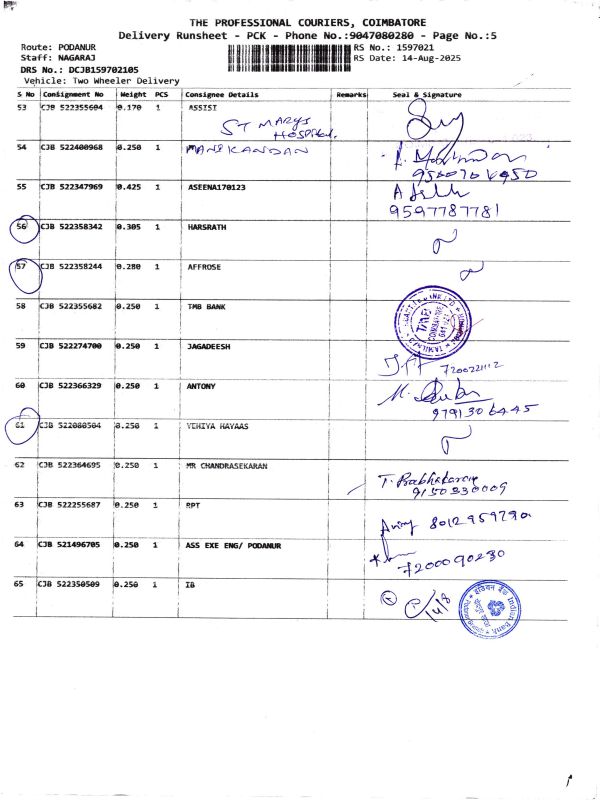 THE PROFESSIONAL COURIERS, COIMBATORE
Delivery Runsheet - PCK - Phone No.:9047080280 - Page No.:5
Route: PODANUR RS No.: 1597021
Staff: NAGARAJ RS Date: 14-Aug-2025
DRS No.: DCJB159702105
Vehicle: Two Wheeler Delivery
S No Consignment No Weight PCS Consignee Details Remarks Seal & Signature
53 CJB 522355604 0.170 1 ASSISI
ST MARYS
HOSPITAL.
54 CJB 522400968 0.250 1 MANIKANDAN
55 CJB 522347969 0.425 1 ASEENA170123
9597787781
56 CJB 522358342 0.305 1 HARSRATH
57 CJB 522358244 0.280 1 AFFROSE
58 CJB 522355682 0.250 1 TMB BANK
TMB
COIMBATORE
59 CJB 522274700 0.250 1 JAGADEESH
7200221112
60 CJB 522366329 0.250 1 ANTONY
9791306445
61 CJB 522088504 0.250 1 YEHIYA HAYAAS
62 CJB 522364695 0.250 1 MR CHANDRASEKARAN
T. Prabhakaran
9150330009
63 CJB 522255687 0.250 1 RPT
64 CJB 521496705 0.250 1 ASS EXE ENG/ PODANUR
7200090230
65 CJB 522350509 0.250 1 IB
इंडियन बैंक Indian Bank